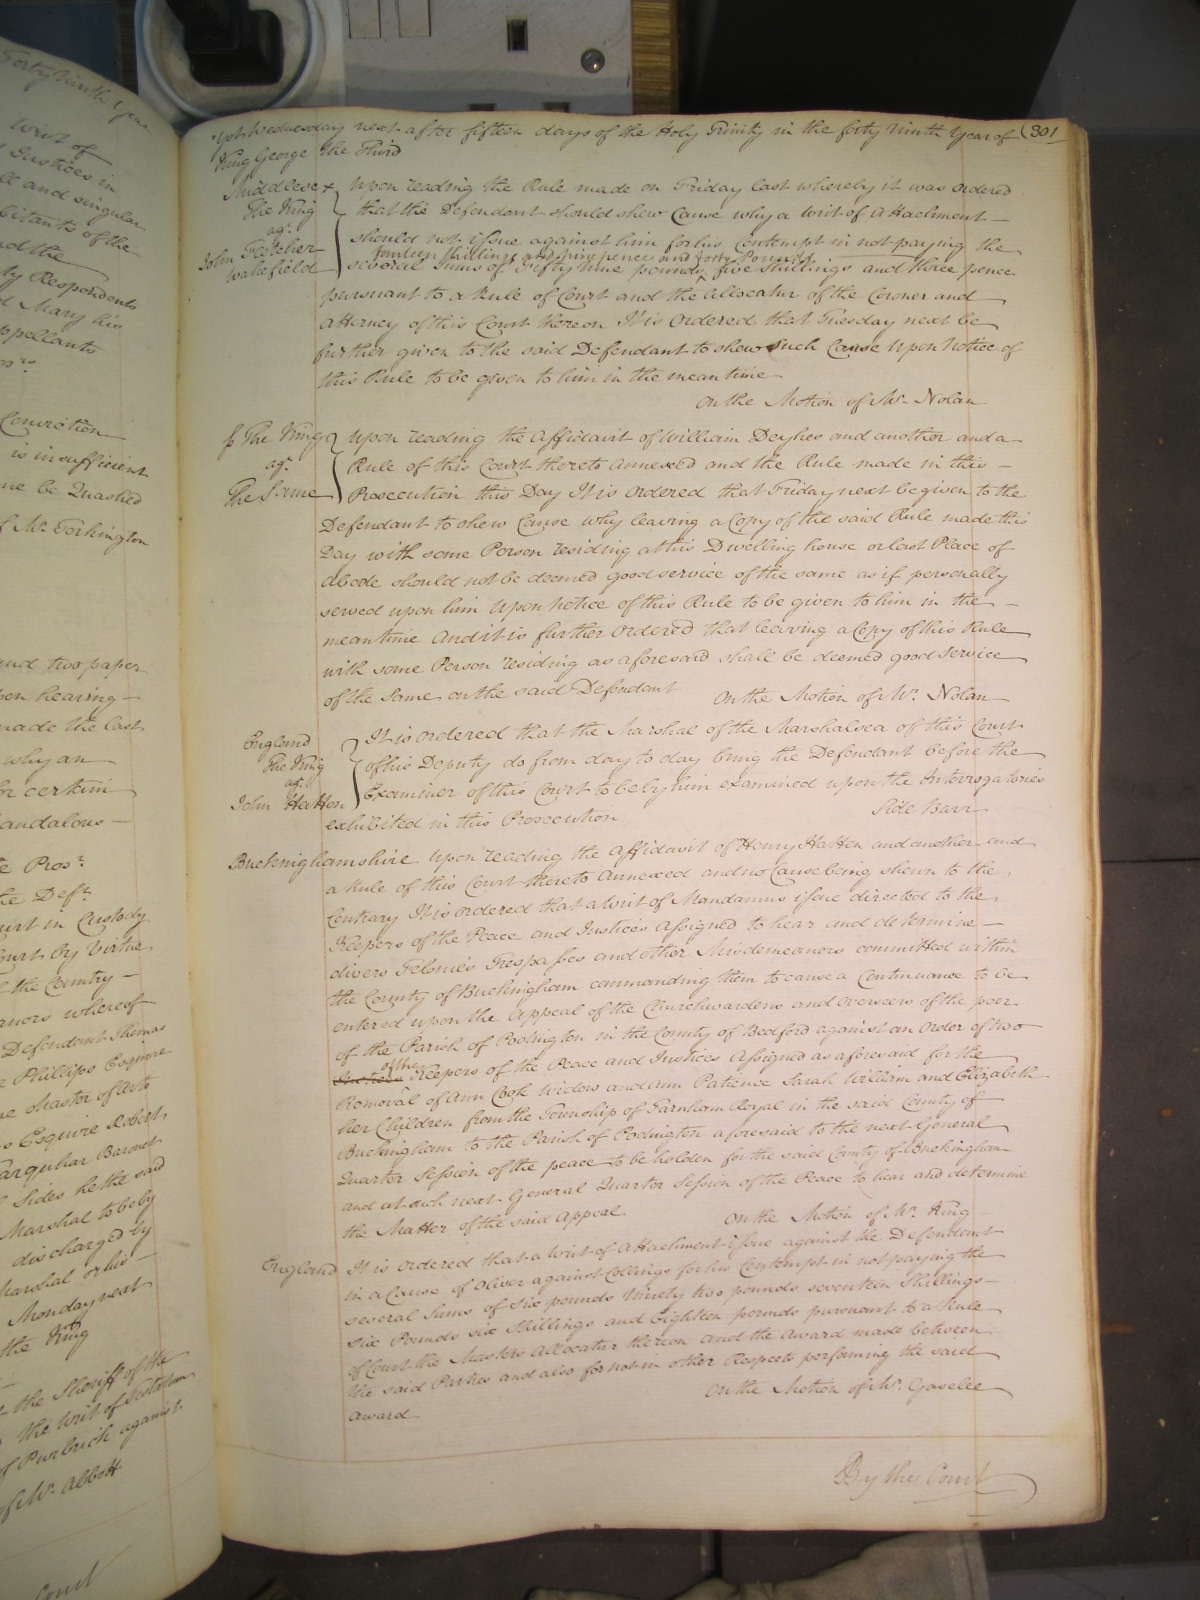 Forty Ninth Year
Writ of
Justices in
and singular
bitants of the
and the
ty Respondents
d Mary his
ppellants
Conviction
is insufficient
me be Quashed
f Mr. Torkington
and two paper
pon hearing
made the last
why an
for certain
candalous
e Prosr.
the Deft.
Court in Custody
Court by Virtue
the Country
anors whereof
Defendant Thomas
Phillips Esquire
he Master of Arts
Esquire Robert
Farquhar Baronet
Sides he the said
Marshal to be by
discharged by
Marshal or his
Monday next
the King
the Sheriff of the
the Writ of
of Purbrick against
of Mr. Abbott
Court
Yet Wednesday next after fifteen days of the Holy Trinity in the forty ninth Year of 301
King George the Third
Middlesex Upon reading the Rule made on Friday last whereby it was ordered
The King that the Defendant should shew Cause why a Writ of Attachment
agt. should not issue against him for his Contempt in not paying the
John Fletcher fourteen Shillings and nine pence and forty Pounds
Wakefield several Sums of Fifty nine pounds ^ five shillings and three pence
pursuant to a Rule of Court and the Allocatur of the Coroner and
Attorney of this Court thereon It is Ordered that Tuesday next be
further given to the said Defendant to shew such Cause Upon Notice of
this Rule to be given to him in the mean time
On the Motion of Mr. Nolan
The King Upon reading the Affidavit of William Deykes and another and a
agt. Rule of this Court thereto Annexed and the Rule made in this
The Same Prosecution this Day It is Ordered that Friday next be given to the
Defendant to shew Cause why leaving a Copy of the said Rule made this
Day with some Person residing at his Dwelling house or last Place of
Abode should not be deemed good service of the same as if personally
served upon him Upon Notice of this Rule to be given to him in the
mean time And it is further Ordered that leaving a Copy of this Rule
with some Person residing as aforesaid shall be deemed good Service
of the Same on the said Defendant On the Motion of Mr. Nolan
England It is ordered that the Marshal of the Marshalsea of this Court
The King or his Deputy do from day to day bring the Defendant before the
agt. Examiner of this Court to be by him examined upon the Interrogatories
John Hatton exhibited in this Prosecution Side Barr
Buckinghamshire Upon reading the Affidavit of Henry Hatten and another and
a Rule of this Court thereto Annexed and no Cause being shewn to the
Contrary It is ordered that a Writ of Mandamus issue directed to the
Keepers of the Peace and Justices Assigned to hear and determine
divers Felonies Trespasses and other Misdemeanors committed within
the County of Buckingham commanding them to cause a Continuance to be
entered upon the Appeal of the Churchwardens and Overseers of the poor
of the Parish of Podington in the County of Bedford against an Order of two
of the
Keepers of the Peace and Justices Assigned as aforesaid for the
Removal of Ann Cook Widow and Ann Patience Sarah William and Elizabeth
her Children from the Township of Farnham Royal in the said County of
Buckingham to the Parish of Podington aforesaid to the next General
Quarter Session of the peace to be holden for the said County of Buckingham
and at such next General Quarter Session of the Peace to hear and determine
the Matter of the said Appeal On the Motion of Mr. King
England It is ordered that a Writ of Attachment issue against the Defendant
in a Cause of Oliver against Collings for his Contempt in not paying the
several Sums of Six pounds Ninety two pounds seventeen Shillings
Six Pounds six Shillings and Eighteen pounds pursuant to a Rule
of Court the Masters Allocatur thereon and the Award made between
the said Parties and also for not in other Respects performing the said
Award On the Motion of Mr. Gaselee
By the Court